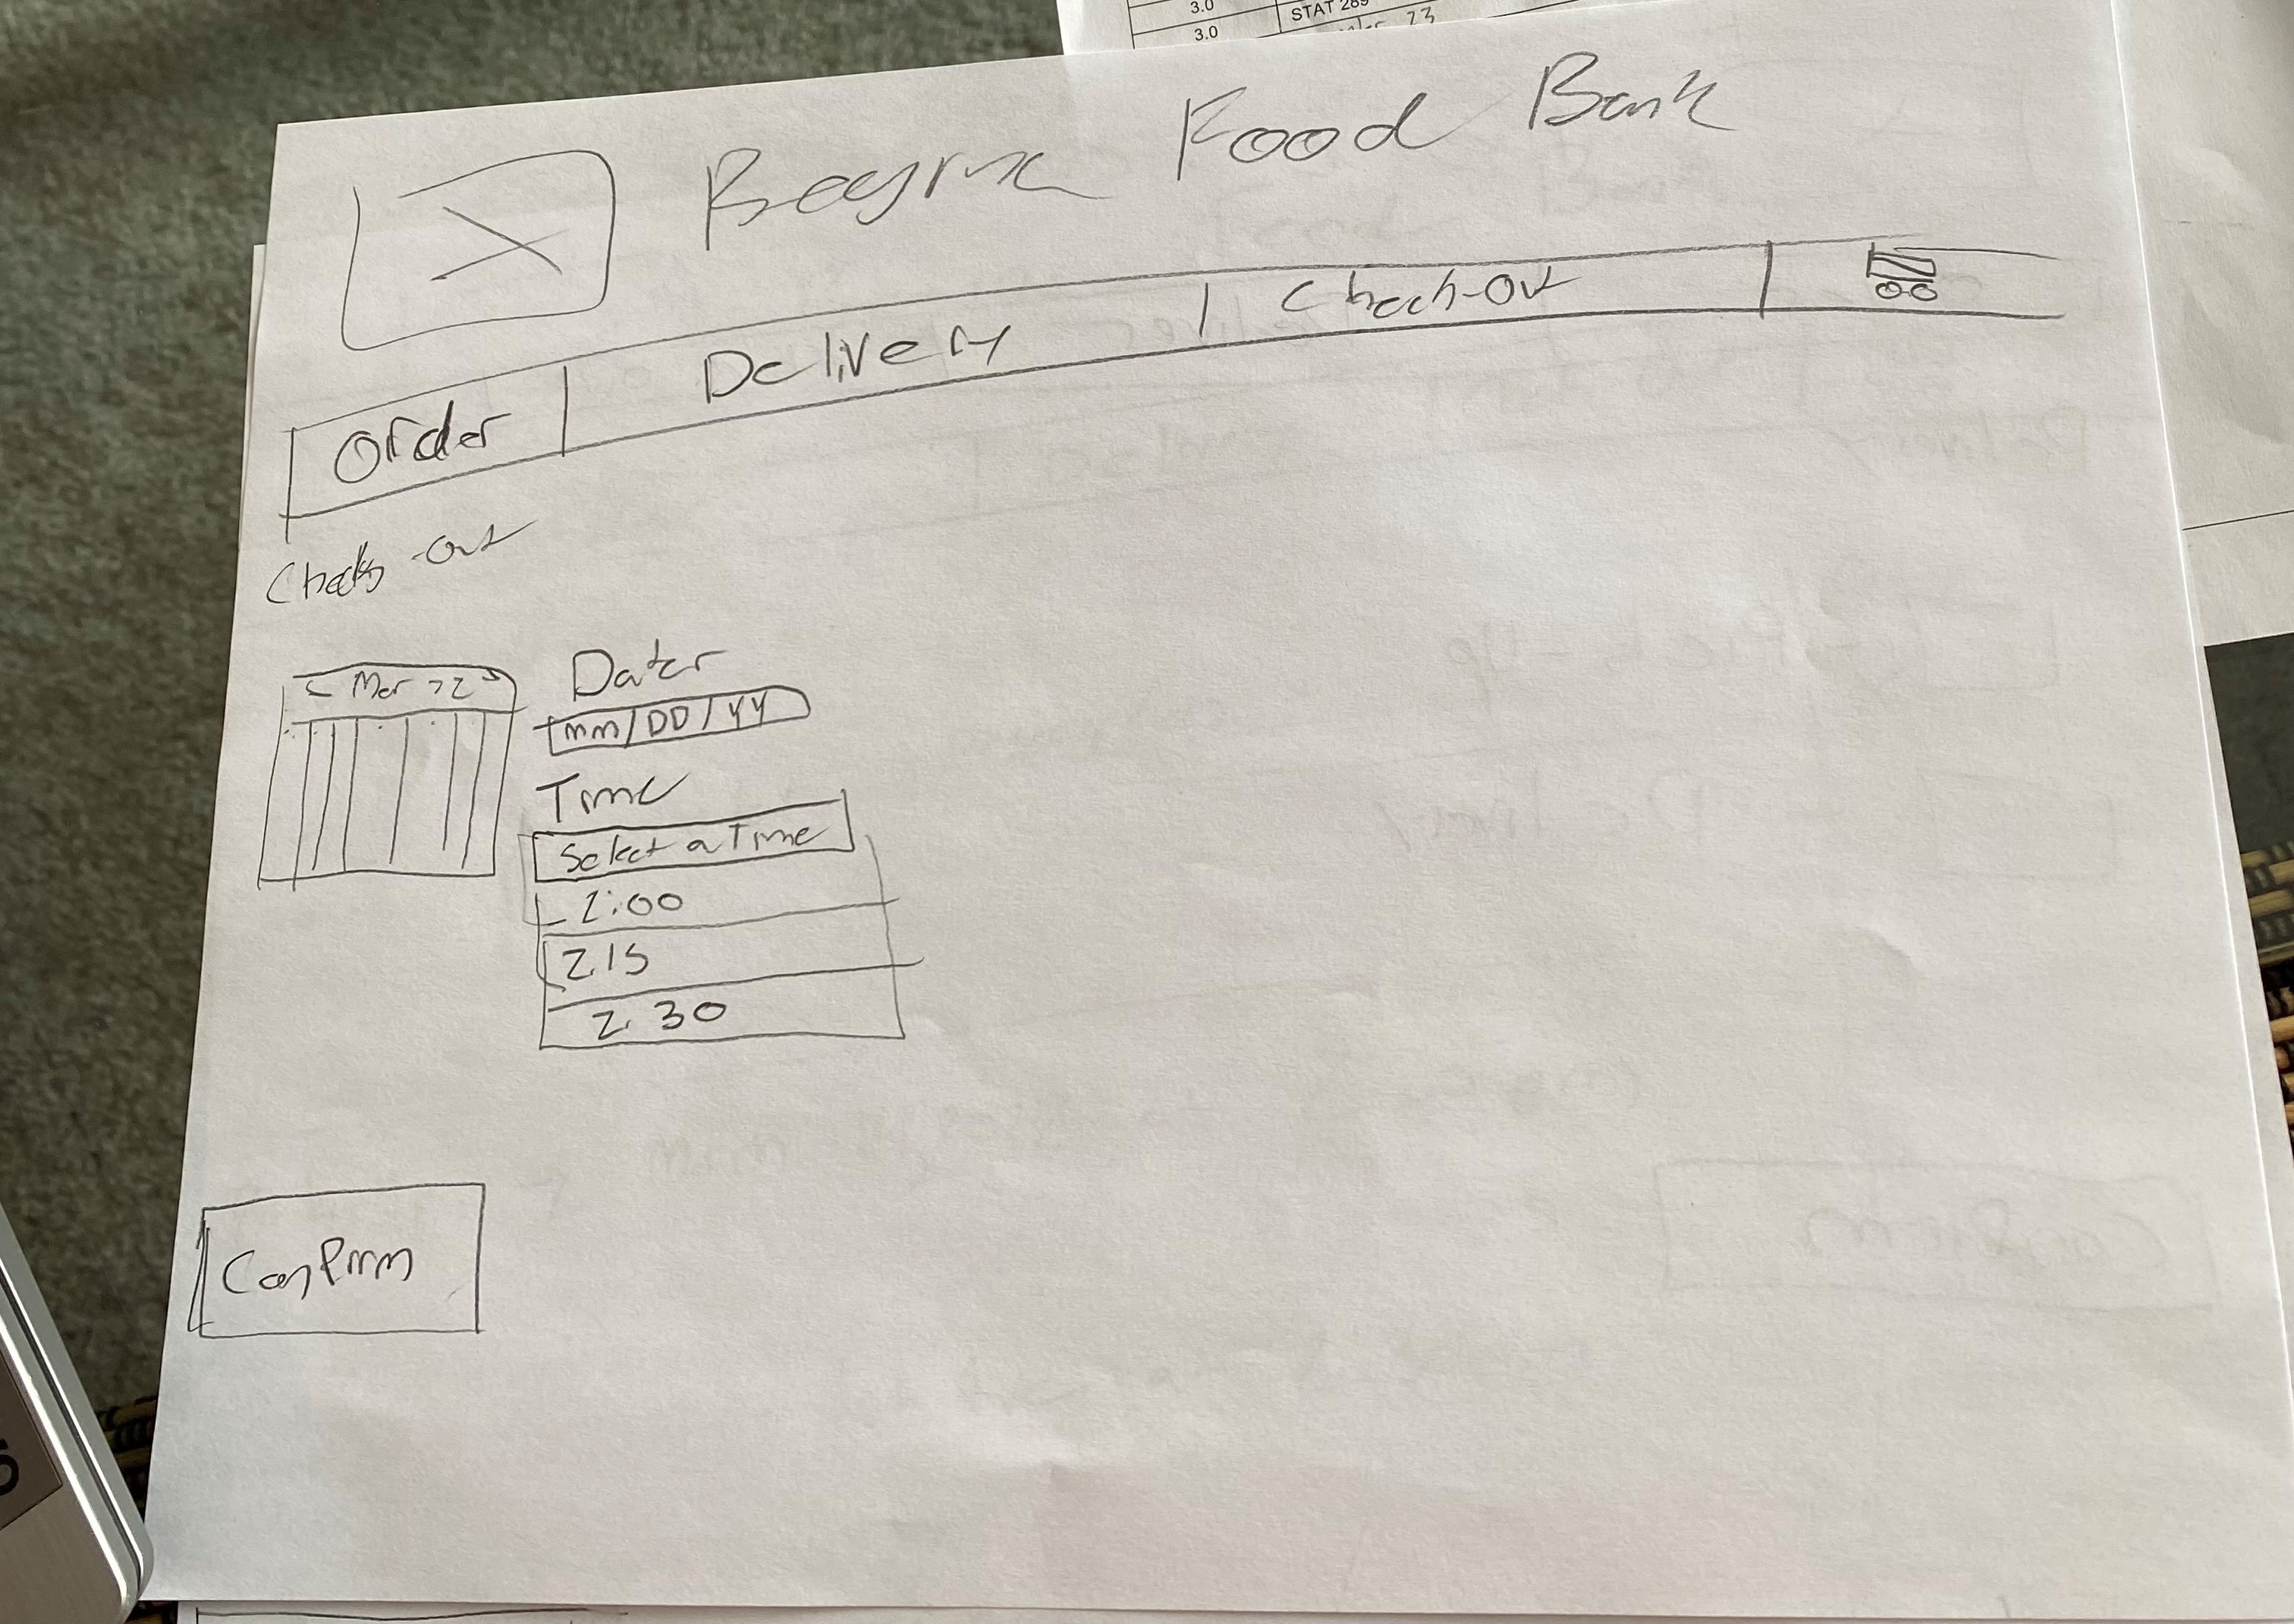 3.0 STAT 289
3.0
Regina Food Bank
Order Delivery Check-Out
Check-Out
< Mar 22 >
Date
mm/DD/YY
Time
Select a Time
2:00
2:15
2:30
Confirm